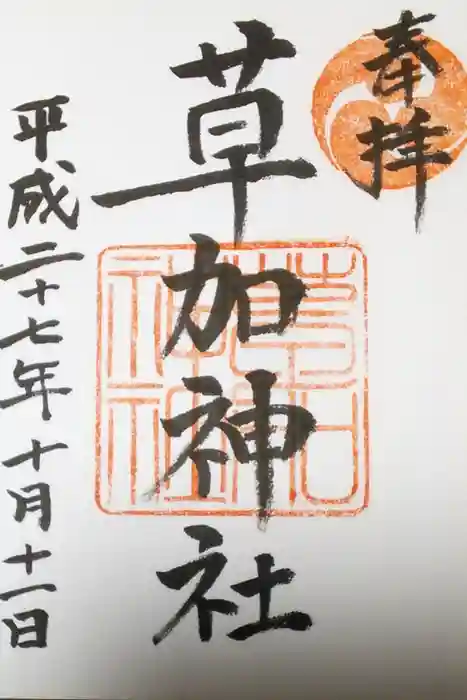 奉拝
草加神社
平成二十七年十月十一日